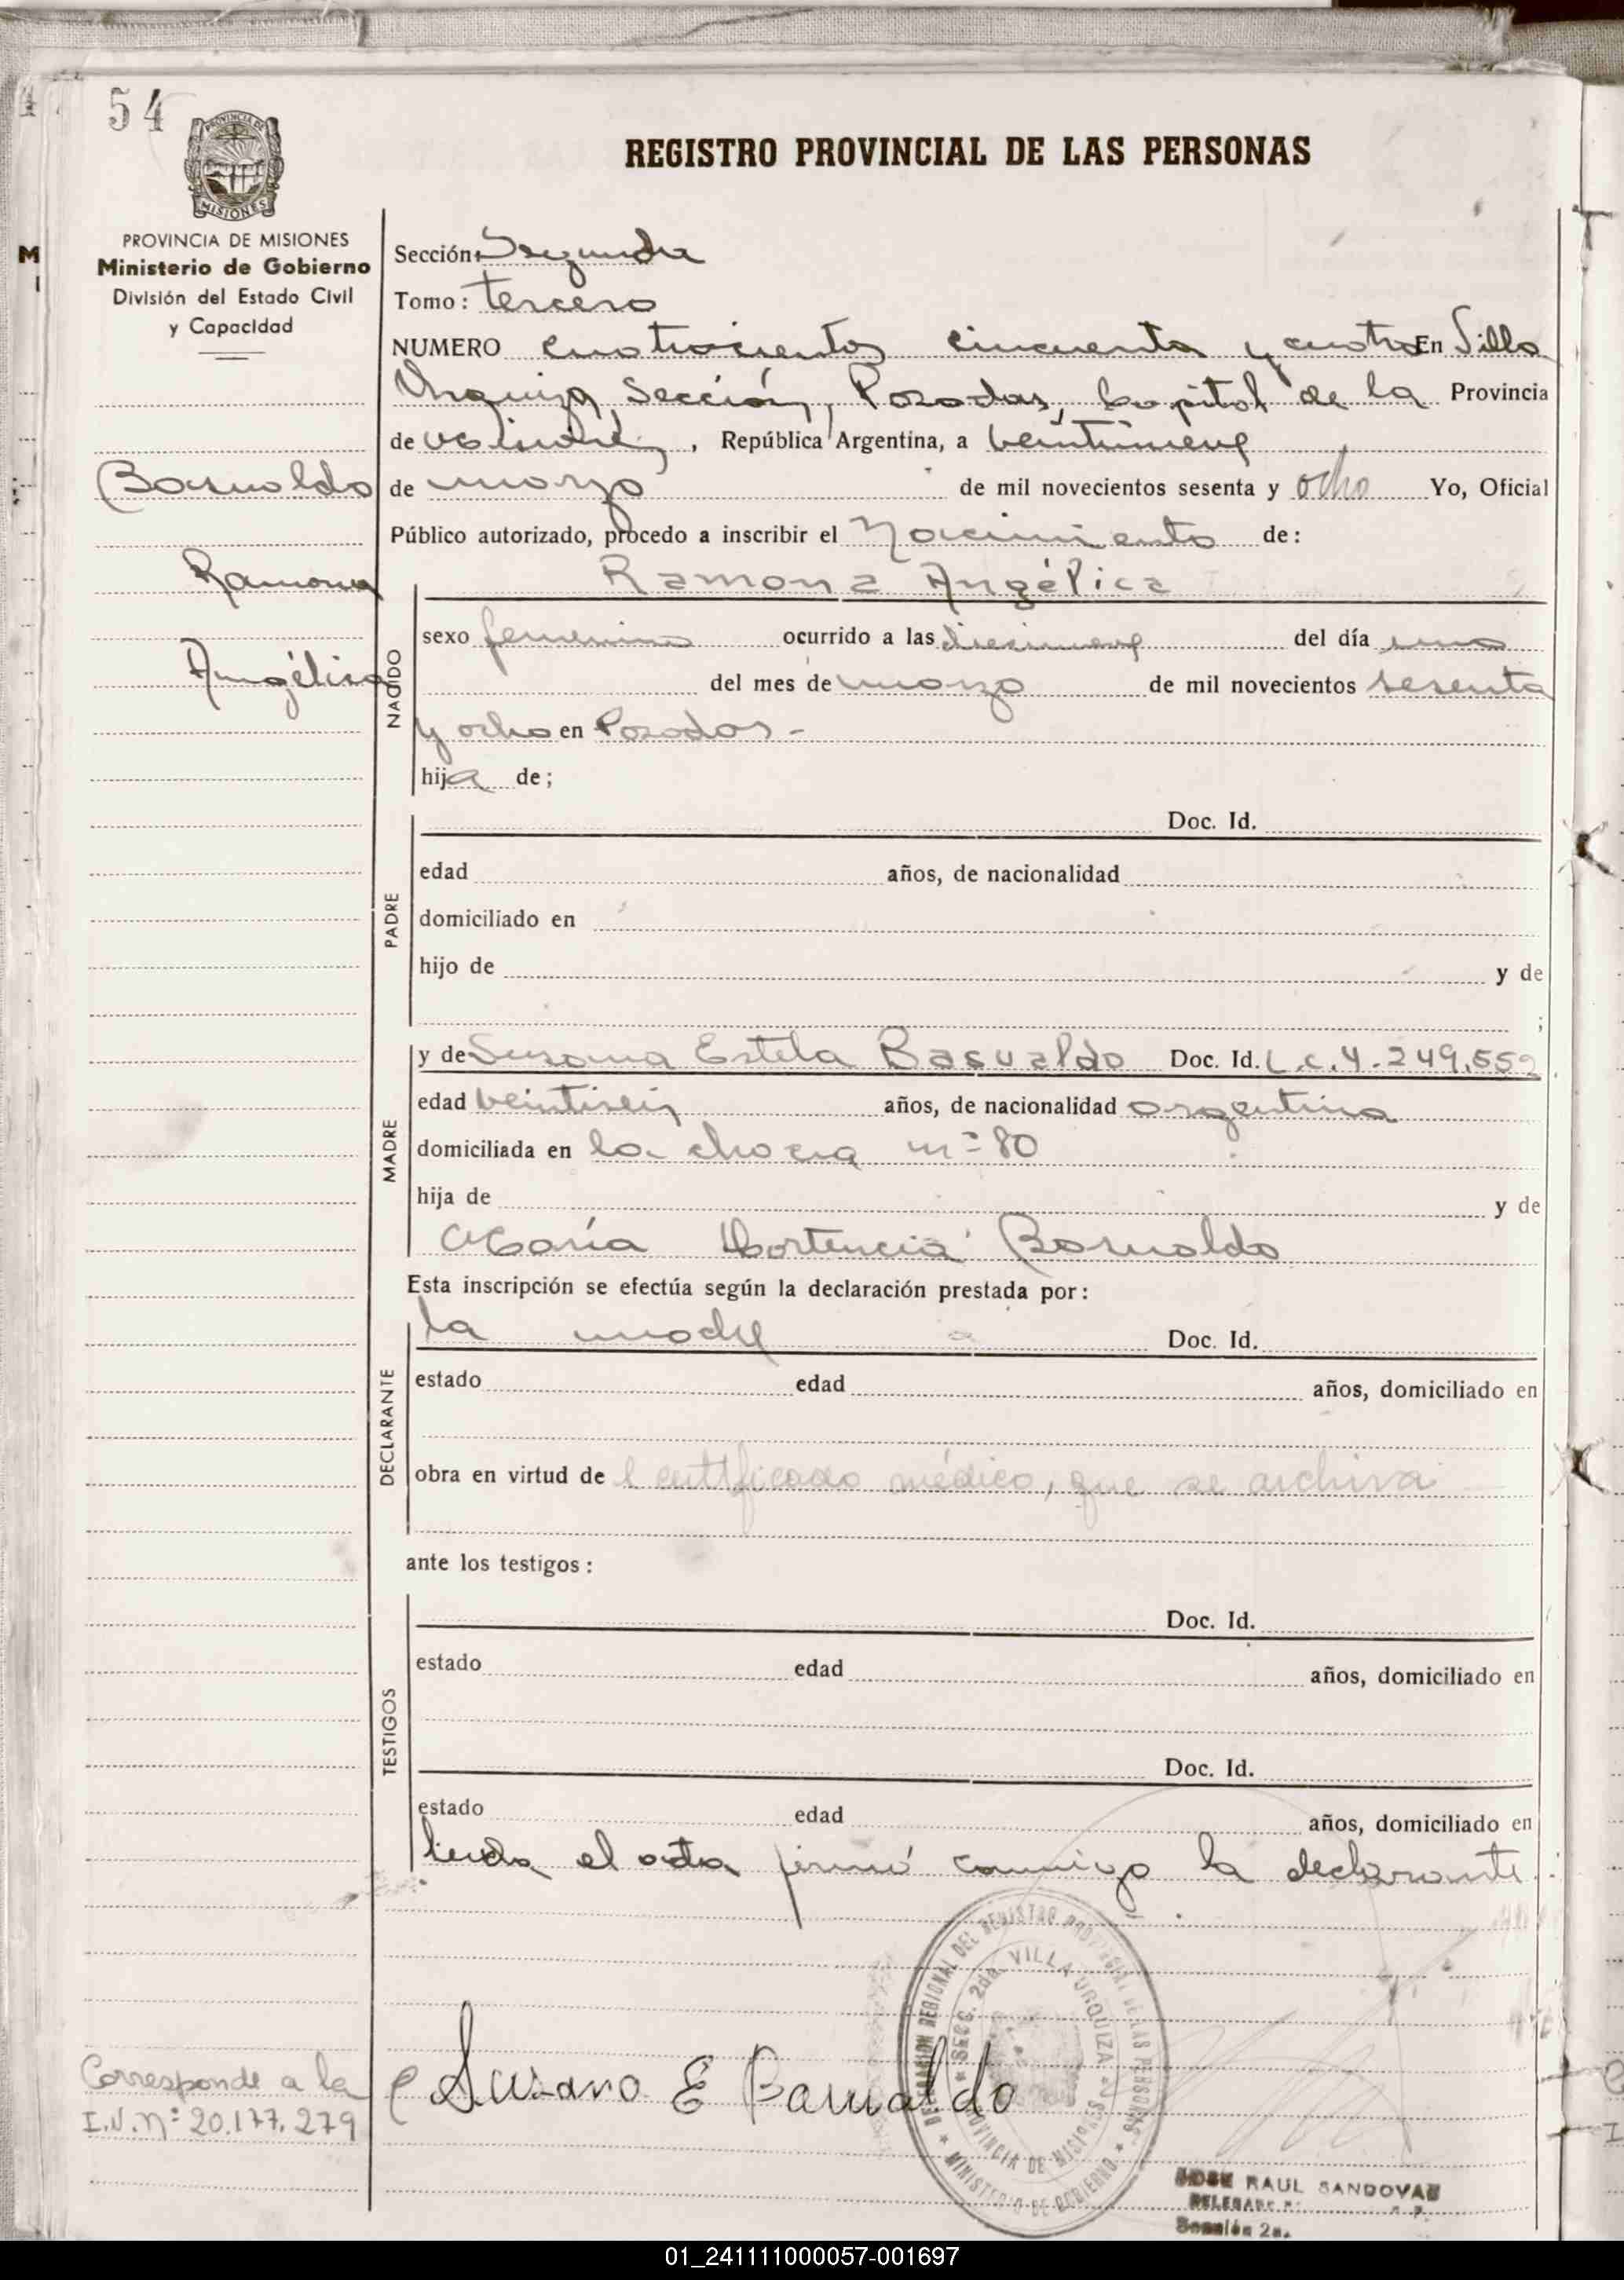 54
REGISTRO PROVINCIAL DE LAS PERSONAS
PROVINCIA DE MISIONES
Ministerio de Gobierno
División del Estado Civil
y Capacidad
Sección: Segunda
Tomo: tercero
NUMERO cuatrocientos cincuenta y cuatro En Villa
Urquiza, Sección, Posadas, Capital de la Provincia
de Misiones, República Argentina, a veintinueve
de marzo de mil novecientos sesenta y ocho Yo, Oficial
Público autorizado, procedo a inscribir el Nacimiento de:
Basualdo
Ramona
Angélica
NACIDO
Ramona Angélica
sexo femenino ocurrido a las diecinueve del día uno
del mes de marzo de mil novecientos sesenta
y ocho en Posadas.-
hija de;
PADRE
Doc. Id.
edad años, de nacionalidad
domiciliado en
hijo de y de
;
MADRE
y de Susana Estela Basualdo Doc. Id. L.C.4.249.552
edad veintiseis años, de nacionalidad argentina
domiciliada en la chacra nº 80
hija de y de
María Hortencia Basualdo
Esta inscripción se efectúa según la declaración prestada por:
DECLARANTE
la madre Doc. Id.
estado edad años, domiciliado en
obra en virtud de l certificado médico, que se archiva
ante los testigos:
TESTIGOS
Doc. Id.
estado edad años, domiciliado en
Doc. Id.
estado edad años, domiciliado en
leida el acta firmó conmigo la declarante
DELEGACION REGIONAL DEL REGISTRO PROVINCIAL DE LAS PERSONAS
SECC. 2da. VILLA URQUIZA
PROVINCIA DE MISIONES
MINISTERIO DE GOBIERNO
Susana E Basualdo
Corresponde a la
I.N. nº 20.177.279
JOSE RAUL SANDOVAL
Sección 2a.
01_241111000057-001697